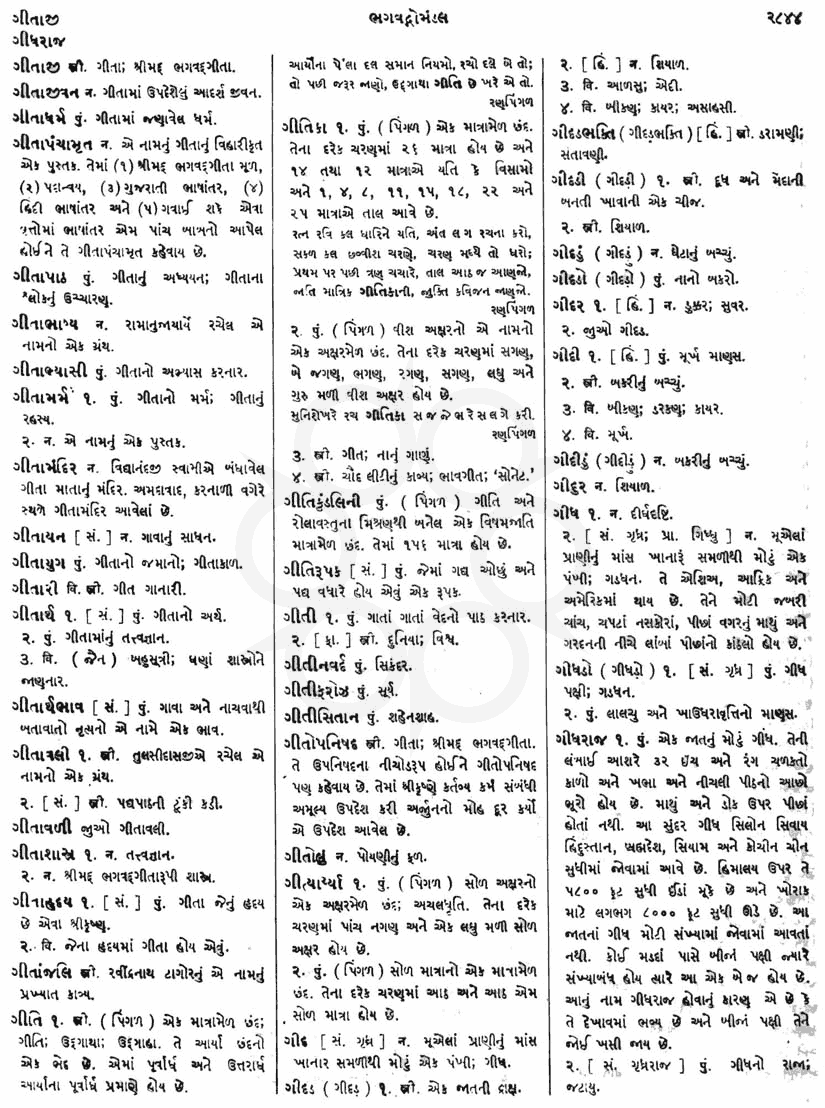 ગીતાજી
ભગવદ્ગોમંડલ
૨૮૪૪
ગીધરાજ
ગીતાજી સ્ત્રી. ગીતા; શ્રીમદ્ ભગવદ્ગીતા.
ગીતાજીવન ન. ગીતામાં ઉપદેશેલું આદર્શ જીવન.
ગીતાધર્મ પું. ગીતામાં જણાવેલ ધર્મ.
ગીતાપંચામૃત ન. એ નામનું ગીતાનું વિહારીકૃત
એક પુસ્તક. તેમાં (૧) શ્રીમદ્ ભગવદ્ગીતા મૂળ,
(૨) પદાન્વય, (૩) ગુજરાતી ભાષાંતર, (૪)
હિંદી ભાષાંતર અને (૫) ગવાઈ શકે એવા
વૃત્તોમાં ભાષાંતર એમ પાંચ બાબતો આપેલ
હોઈને તે ગીતાપંચામૃત કહેવાય છે.
ગીતાપાઠ પું. ગીતાનું અધ્યયન; ગીતાના
શ્લોકનું ઉચ્ચારણ.
ગીતાભાષ્ય ન. રામાનુજાચાર્યે રચેલ એ
નામનો એક ગ્રંથ.
ગીતાભ્યાસી પું. ગીતાનો અભ્યાસ કરનાર.
ગીતામર્મ ૧. પું. ગીતાનો મર્મ; ગીતાનું
રહસ્ય.
૨. ન. એ નામનું એક પુસ્તક.
ગીતામંદિર ન. વિદ્યાનંદજી સ્વામીએ બંધાવેલ
ગીતા માતાનું મંદિર. અમદાવાદ, કરનાળી વગેરે
સ્થળે ગીતામંદિર આવેલાં છે.
ગીતાયન [ સં. ] ન. ગાવાનું સાધન.
ગીતાયુગ પું. ગીતાનો જમાનો; ગીતાકાળ.
ગીતારી વિ. સ્ત્રી. ગીત ગાનારી.
ગીતાર્થ ૧. [ સં. ] પું. ગીતાનો અર્થ.
૨. પું. ગીતામાંનું તત્ત્વજ્ઞાન.
૩. વિ. ( જૈન ) બહુસૂત્રી; ઘણાં શાસ્ત્રોને
જાણનાર.
ગીતાર્થભાવ [ સં. ] પું. ગાવા અને નાચવાથી
બતાવાતો નૃત્યનો એ નામે એક ભાવ.
ગીતાવલી ૧. સ્ત્રી. તુલસીદાસજીએ રચેલ એ
નામનો એક ગ્રંથ.
૨. [ સં. ] સ્ત્રી. પદ્યપાઠની ટૂંકી કડી.
ગીતાવળી જુઓ ગીતાવલી.
ગીતાશાસ્ત્ર ૧. ન. તત્ત્વજ્ઞાન.
૨. ન. શ્રીમદ્ ભગવદ્ગીતારૂપી શાસ્ત્ર.
ગીતાહૃદય ૧. [ સં. ] પું. ગીતા જેનું હૃદય
છે એવા શ્રીકૃષ્ણ.
૨. વિ. જેના હૃદયમાં ગીતા હોય એવું.
ગીતાંજલિ સ્ત્રી. રવીંદ્રનાથ ટાગોરનું એ નામનું
પ્રખ્યાત કાવ્ય.
ગીતિ ૧. સ્ત્રી. ( પિંગળ ) એક માત્રામેળ છંદ;
ગીતિ; ઉદ્ગાથા; ઉદ્ગાહા. તે આર્યા છંદનો
એક ભેદ છે. એમાં પૂર્વાર્ધ અને ઉત્તરાર્ધ
આર્યાના પૂર્વાર્ધ પ્રમાણે હોય છે.
આર્યાના પે'લા દલ સમાન નિયમો, રચો દલે બે તો;
તો પછી જરૂર જાણો, ઉદ્ગાથા ગીતિ છે ખરે એ તો.
રણપિંગળ
ગીતિકા ૧. પું. ( પિંગળ ) એક માત્રામેળ છંદ.
તેના દરેક ચરણમાં ૨૬ માત્રા હોય છે અને
૧૪ તથા ૧૨ માત્રાએ યતિ કે વિસામો
અને ૧, ૪, ૮, ૧૧, ૧૫, ૧૮, ૨૨ અને
૨૫ માત્રાએ તાલ આવે છે.
રત્ન રવિ કલ ધારિને યતિ, અંત લગ રચના કરો,
સકળ કલ છવ્વીશ ચરણે, ચરણ મધ્યે તો ધરો;
પ્રથમ પર પછી ત્રણ ચચારે, તાલ આઠ જ આણજો,
જાતિ માત્રિક ગીતિકાની, જુક્તિ કવિજન જાણજો.
રણપિંગળ
૨. પું. ( પિંગળ ) વીશ અક્ષરનો એ નામનો
એક અક્ષરમેળ છંદ. તેના દરેક ચરણમાં સગણ,
બે જગણ, ભગણ, રગણ, સગણ, લઘુ અને
ગુરુ મળી વીશ અક્ષર હોય છે.
મુનિશેખરે રચ ગીતિકા સ જ જે ભ રે સ લ ગે કરી.
રણપિંગળ
૩. સ્ત્રી. ગીત; નાનું ગાણું.
૪. સ્ત્રી. ચૌદ લીટીનું કાવ્ય; ભાવગીત; ‘સોનેટ.’
ગીતિકુંડલિની પું. ( પિંગળ ) ગીતિ અને
રોલાવસ્તુના મિશ્રણથી બનેલ એક વિષમજાતિ
માત્રામેળ છંદ. તેમાં ૧૫૬ માત્રા હોય છે.
ગીતિરૂપક [ સં. ] પું. જેમાં ગદ્ય ઓછું અને
પદ્ય વધારે હોય એવું એક રૂપક.
ગીતી ૧. પું. ગાતાં ગાતાં વેદનો પાઠ કરનાર.
૨. [ ફા. ] સ્ત્રી. દુનિયા; વિશ્વ.
ગીતીનવર્દ પું. સિકંદર.
ગીતીફરોઝ પું. સૂર્ય.
ગીતીસિતાન પું. શહેનશાહ.
ગીતોપનિષદ સ્ત્રી. ગીતા; શ્રીમદ્ ભગવદ્ગીતા.
તે ઉપનિષદના નીચોડરૂપ હોઈને ગીતોપનિષદ
પણ કહેવાય છે. તેમાં શ્રીકૃષ્ણે કર્તવ્ય કર્મ સંબંધી
અમૂલ્ય ઉપદેશ કરી અર્જુનનો મોહ દૂર કર્યો
એ ઉપદેશ આવેલ છે.
ગીતોલુ ન. પોયણીનું ફૂળ.
ગીત્યાર્યા ૧. પું. ( પિંગળ ) સોળ અક્ષરનો
એક અક્ષરમેળ છંદ; અચલધૃતિ. તેના દરેક
ચરણમાં પાંચ નગણ અને એક લઘુ મળી સોળ
અક્ષર હોય છે.
૨. પું. ( પિંગળ ) સોળ માત્રાનો એક માત્રામેળ
છંદ. તેના દરેક ચરણમાં આઠ અને આઠ એમ
સોળ માત્રા હોય છે.
ગીદ [ સં. ગૃધ્ર ] ન. મૂએલાં પ્રાણીનું માંસ
ખાનાર સમળીથી મોટું એક પંખી; ગીધ.
ગીદડ ( ગીદડ઼ ) ૧. સ્ત્રી. એક જાતની દ્રાક્ષ.
૨. [ હિં. ] ન. શિયાળ.
૩. વિ. આળસુ; એદી.
૪. વિ. બીકણ; કાયર; અસાહસી.
ગીદડભક્તિ ( ગીદડ઼ભક્તિ ) [ હિં. ] સ્ત્રી. ડરામણી;
સંતાવણી.
ગીદડી ( ગીદડ઼ી ) ૧. સ્ત્રી. દૂધ અને મેંદાની
બનતી ખાવાની એક ચીજ.
૨. સ્ત્રી. શિયાળ.
ગીદડું ( ગીદડ઼ું ) ન. ઘેટાનું બચ્ચું.
ગીદડો ( ગીદડ઼ો ) પું. નાનો બકરો.
ગીદર ૧. [ હિં. ] ન. ડુક્કર; સુવર.
૨. જુઓ ગીદડ.
ગીદી ૧. [ હિં. ] પું. મૂર્ખ માણસ.
૨. સ્ત્રી. બકરીનું બચ્ચું.
૩. વિ. બીકણ; ડરકણ; કાયર.
૪. વિ. મૂર્ખ.
ગીદીડું ( ગીદીડ઼ું ) ન. બકરીનું બચ્ચું.
ગીદુર ન. શિયાળ.
ગીધ ૧. ન. દીર્ઘદૃષ્ટિ.
૨. [ સં. ગૃધ્ર; પ્રા. ગિધ્ધ ] ન. મૂએલાં
પ્રાણીનું માંસ ખાનારું સમળીથી મોટું એક
પંખી; ગડધન. તે એશિઆ, આફ્રિક અને
અમેરિકમાં થાય છે. તેને મોટી જબરી
ચાંચ, ચપટાં નસકોરાં, પીછાં વગરનું માથું અને
ગરદનની નીચે લાંબા પીછાંનો કાંઠલો હોય છે.
ગીધડો ( ગીધડ઼ો ) ૧. [ સં. ગૃધ્ર ] પું. ગીધ
પક્ષી; ગડધન.
૨. પું. લાલચુ અને ખાઉધરાવૃત્તિનો માણસ.
ગીધરાજ ૧. પું. એક જાતનું મોટું ગીધ. તેની
લંબાઈ આશરે ૩૨ ઇંચ અને રંગ ચળકતો
કાળો અને ખભા અને નીચલી પીઠનો આછો
ભૂરો હોય છે. માથું અને ડોક ઉપર પીછાં
હોતાં નથી. આ સુંદર ગીધ સિલોન સિવાય
હિંદુસ્તાન, બ્રહ્મદેશ, સિયામ અને કોચીન ચીન
સુધીમાં જોવામાં આવે છે. હિમાલય ઉપર તે
૫૮૦૦ ફૂટ સુધી ઈંડાં મૂકે છે અને ખોરાક
માટે લગભગ ૮૦૦૦ ફૂટ સુધી ઊડે છે. આ
જાતનાં ગીધ મોટી સંખ્યામાં જોવામાં આવતાં
નથી. કોઈ મડદાં પાસે બીજાં પક્ષી જ્યારે
સંખ્યાબંધ હોય ત્યારે આ એક બે જ હોય છે.
આનું નામ ગીધરાજ હોવાનું કારણ એ છે કે
તે દેખાવમાં ભવ્ય છે અને બીજાં પક્ષી તેને
જોઈ ખસી જાય છે.
૨. [ સં. ગૃધ્રરાજ ] પું. ગીધનો રાજા;
જટાયુ.